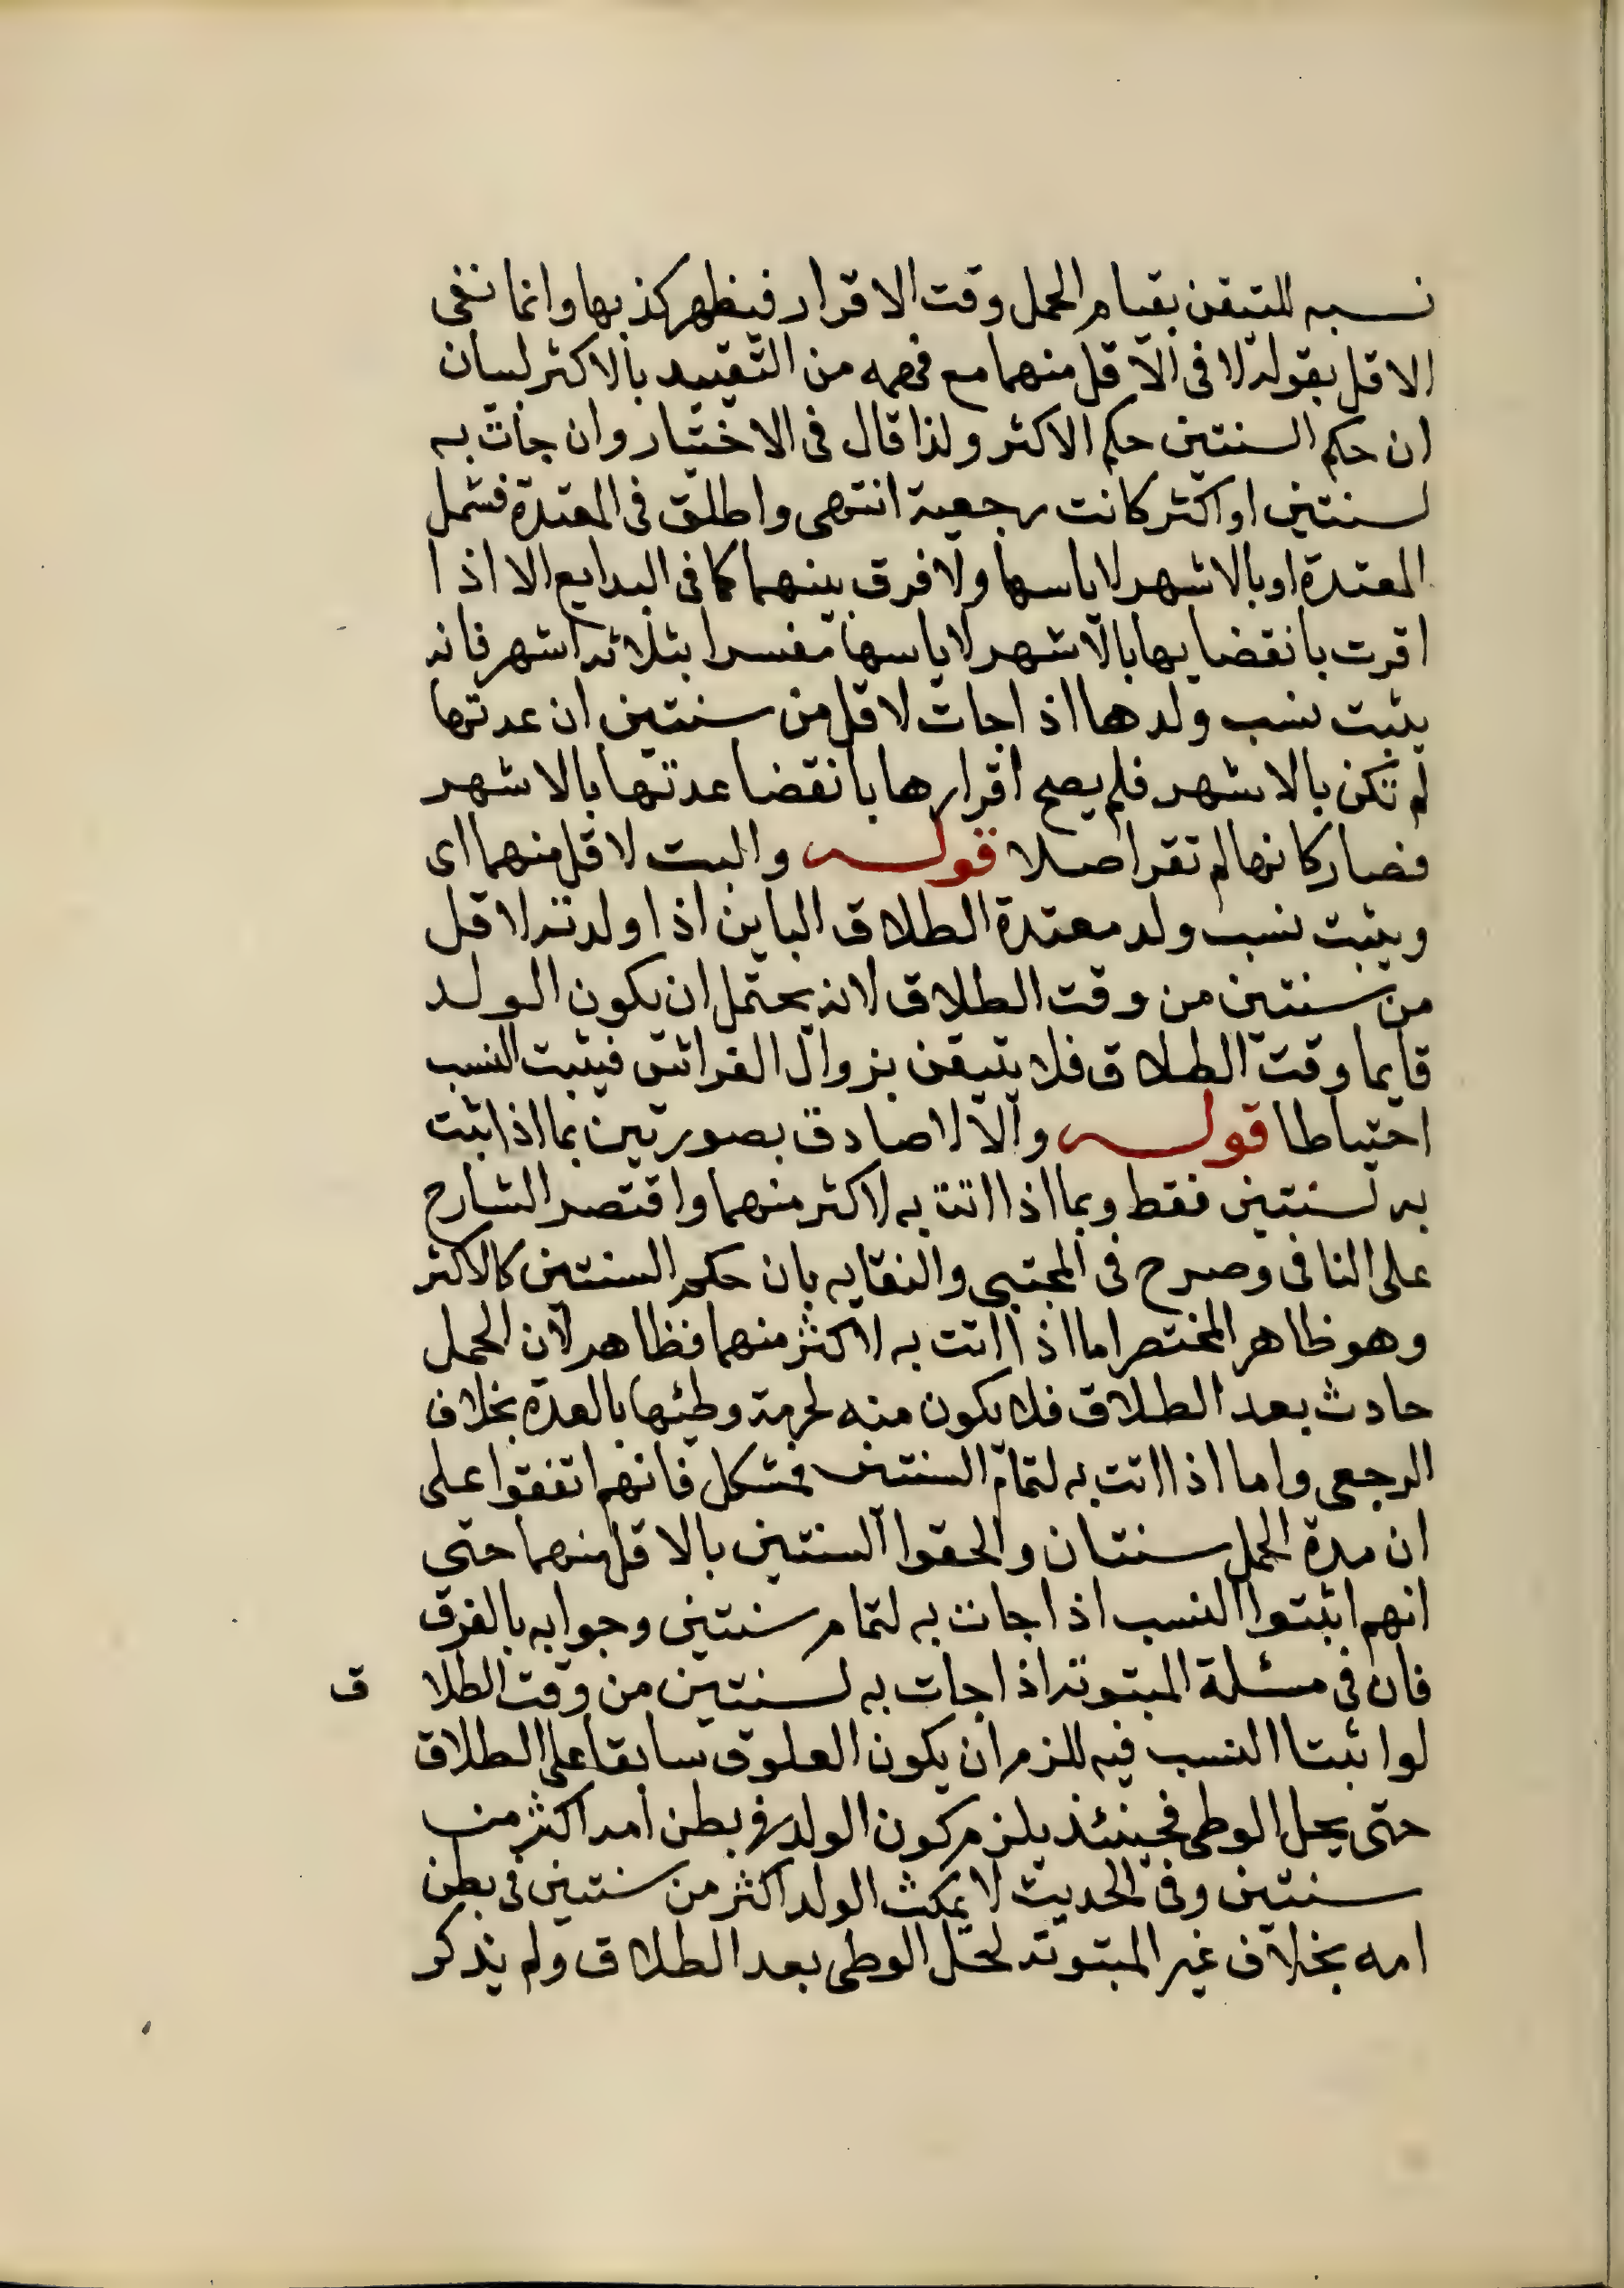 نسبه للتيقن بقيام الحمل وقت الاقرار فيظهر كذبها وانما نفى
الاقل بقوله لا فى الاقل منهما مع فهمه من التقييد بالاكثر لبيان
ان حكم السنتين حكم الاكثر ولذا قال فى الاختيار وان جات به
لسنتين او اكثر كانت رجعية انتهى واطلق فى المعتدة فشمل
المعتدة او بالاشهر لاياسها ولا فرق بينهما كما فى البدايع الا اذا
اقرت بانقضايها بالاشهر لاياسها مفسرا بثلاثه اشهر فانه
يثبت نسب ولدها اذا جات لاقل من سنتين ان عدتها
لم تكن بالاشهر فلم يصح اقرارها بانقضا عدتها بالاشهر
فصار كانها لم تقر اصلا قوله والبت لاقل منهما اى
ويثبت نسب ولد معتدة الطلاق الباين اذا ولدته لاقل
من سنتين من وقت الطلاق لانه يحتمل ان يكون الولد
قايما وقت الطلاق فلا يتيقن بزوال الفراش فيثبت النسب
احتياطا قوله والا لا صادق بصورتين بما اذا اتت
به لسنتين فقط وبما اذا اتت به لاكثر منهما واقتصر الشارح
على الثانى وصرح فى المجتبى والنقايه بان حكم السنتين كالاكثر
وهو ظاهر المختصر اما اذا اتت به لاكثر منهما فظاهر لان الحمل
حادث بعد الطلاق فلا يكون منه لحرمة وطئها بالعدة بخلاف
الرجعى واما اذا اتت به لتمام السنتين فمشكل فانهم اتفقوا على
ان مدة الحمل سنتان والحقوا السنتين بالاقل منهما حتى
انهم اثبتوا النسب اذا جات به لتمام سنتين وجوابه بالفرق
فان فى مسئلة المبتوته اذا جات به لسنتين من وقت الطلا ق
لو اثبتنا النسب فيه للزم ان يكون العلوق سابقا على الطلاق
حتى يحل الوطى فحينئذ يلزم كون الولد فى بطن امه اكثر من
سنتين وفى الحديث لا يمكث الولد اكثر من سنتين فى بطن
امه بخلاف غير المبتوته لحل الوطى بعد الطلاق ولم يذكر